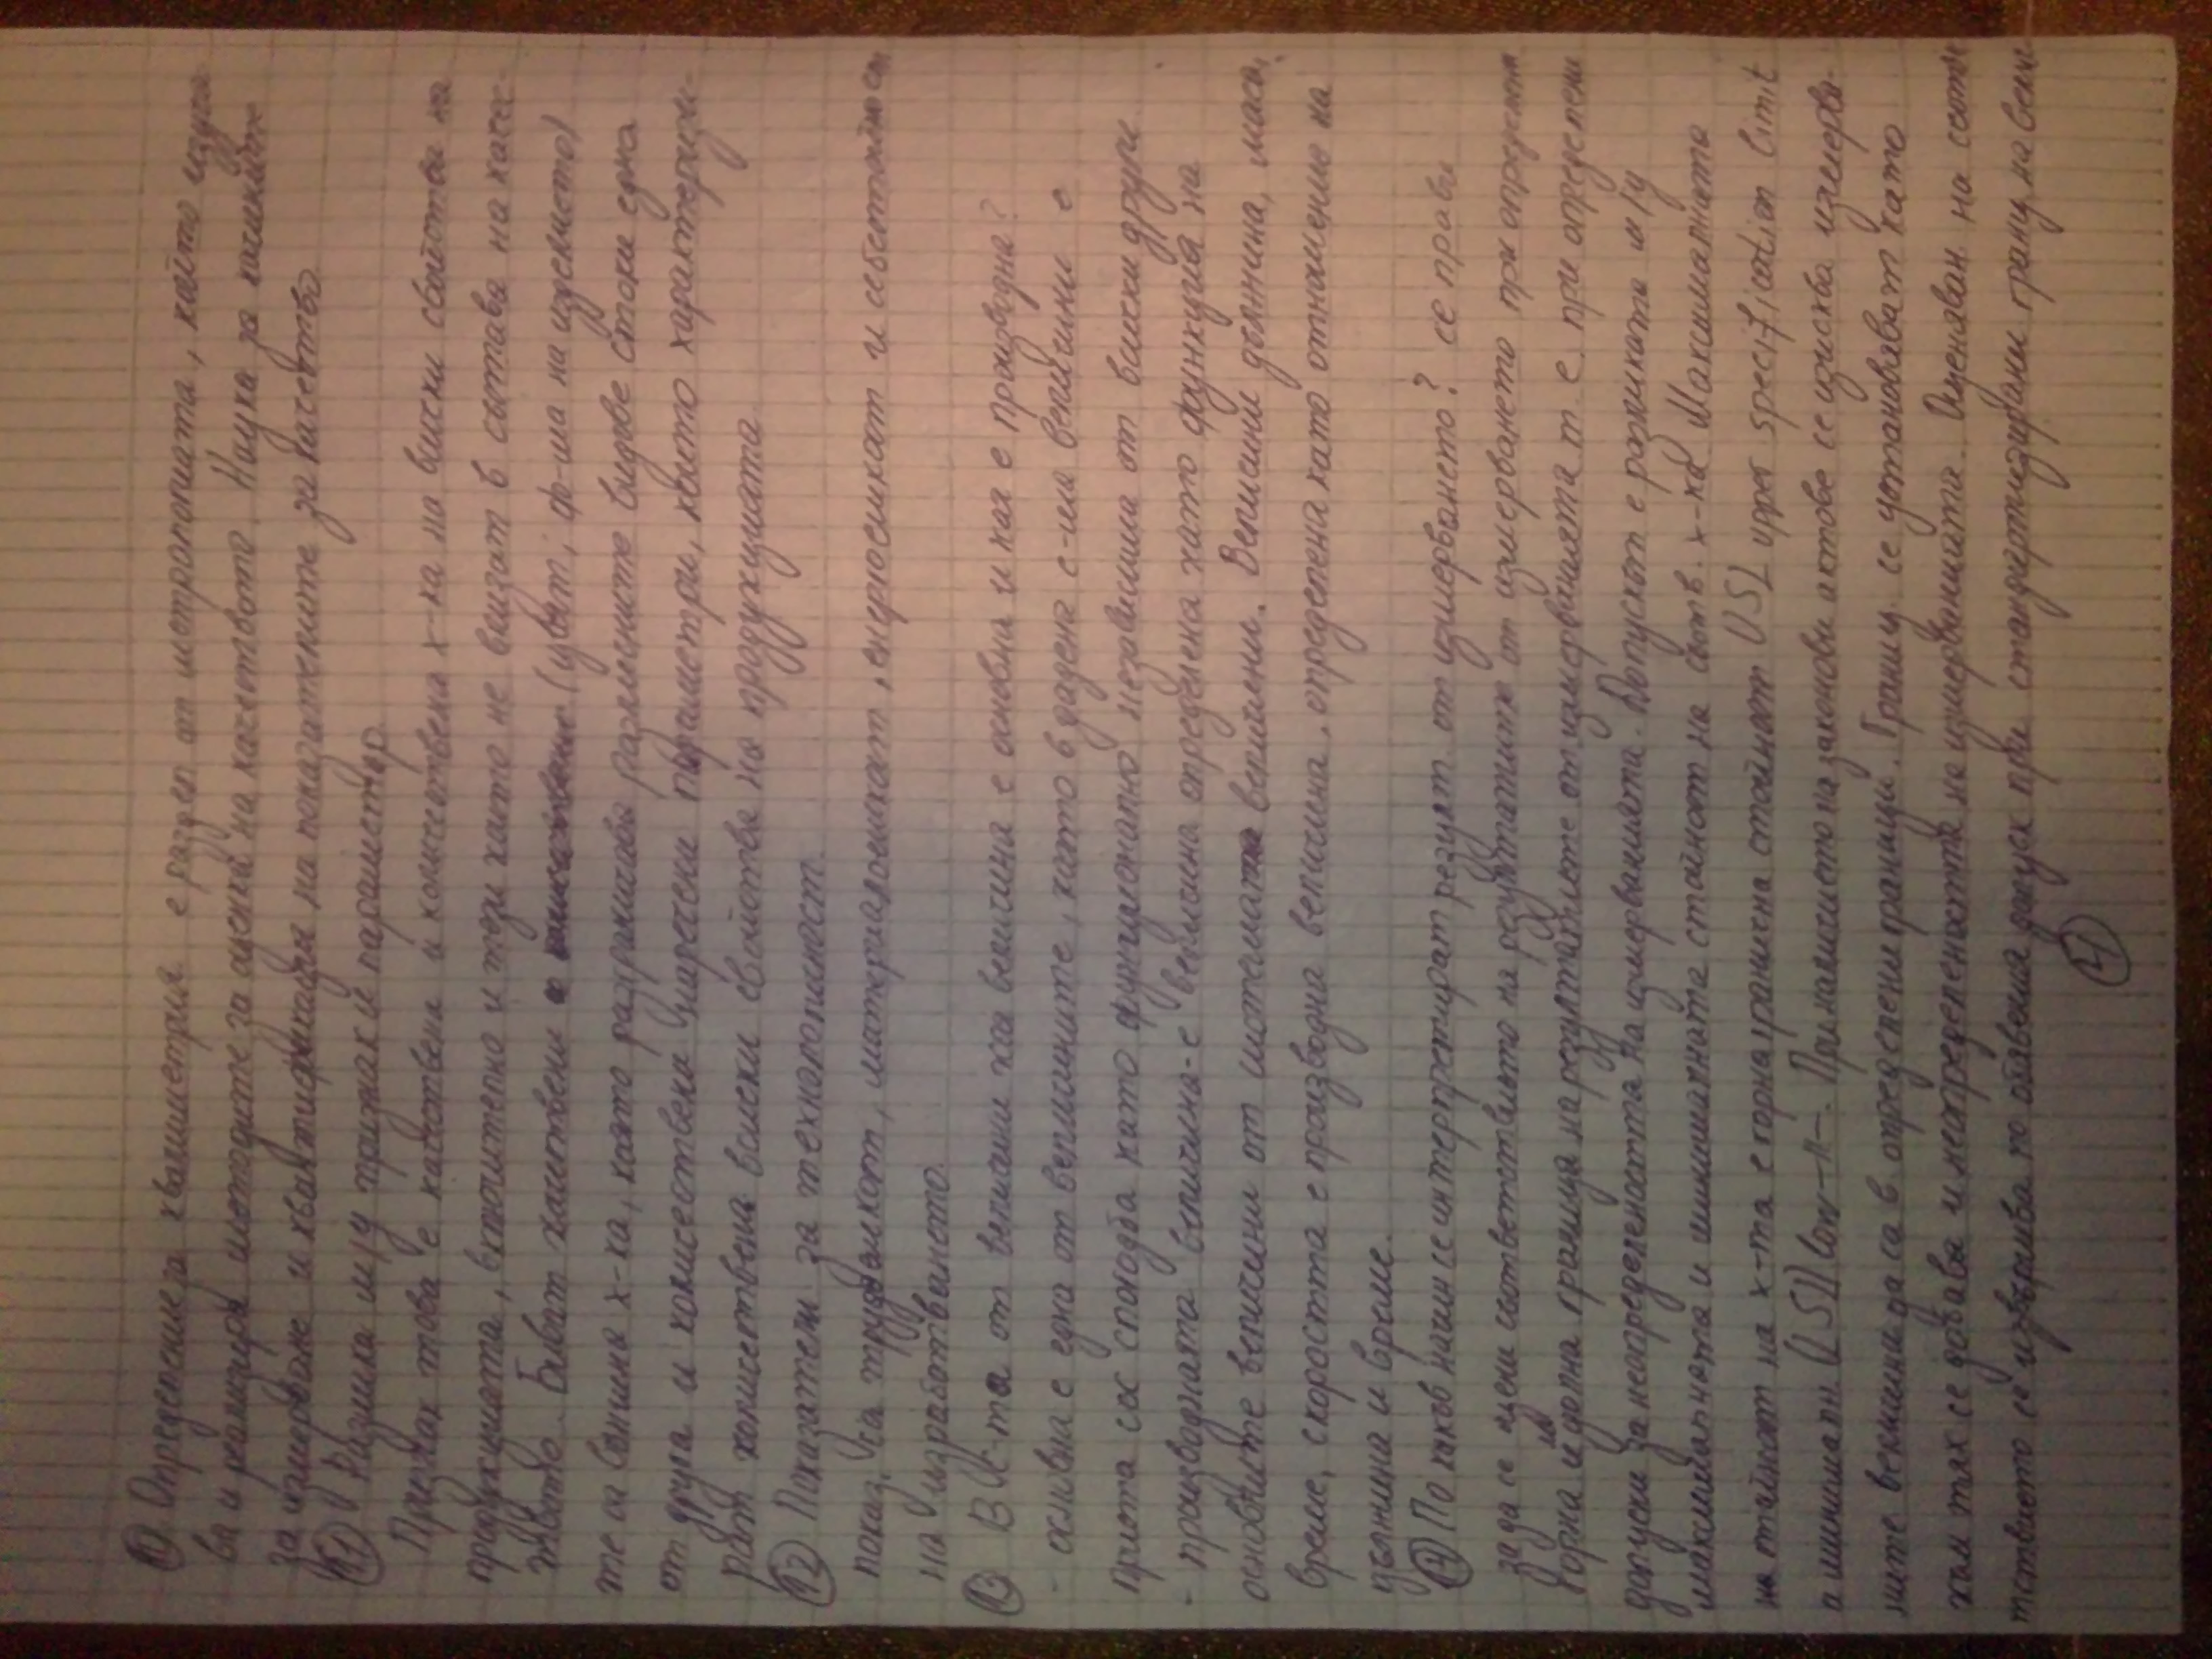 ⑪ Определение за квалиметрия е раздел от метрологията, който изуча-
ва и реализира методите за оценка на качеството. Наука за начините
за измерване и квантификация на показателите за качество
Разлика м/у признак и параметър.
Признак това е качествена и количествена х-ка на всички свойства на
продукцията, включително и тези които не влизат в състава на качес-
твото. Биват качествени (цвят, ф-ма на изделието)
те са външна х-ка, която разграничава различните видове стоки една
от друга и количествени наречени параметри, които характеризи-
рат количествена всички свойства на продукцията
⑫ Показатели за технологичност
показ. са трудоемкост, материалоемкост, енергоемкост и себестойност
на изработването
⑬ В с-та от величини коя величина е основна и коя е производна?
- основна е една от величините, които в дадена с-ма величини е
приета със спогодба като функционално независима от всички други
- производната величина - е величина определена като функция на
основните величини от системата величини. Величини дължина, маса,
време, скоростта е производна величина, определена като отношение на
дължина и време.
⑭ По какъв начин се интерпретират резулт. от измерването? се прави
за да се оцени съответствието на резултатите от измерването при определен
горна и долна граница на резултатите от измерванията т.е. при определени
допуски за неопределеността на измерванията. Допускът е разликата м/у
максималната и минималната стойност на съотв. х-ка. Максималната
стойност на х-та е горна гранична стойност USL upper specification limit
а минималн LSL low-//-. При наличието на законови актове се изисква измерва-
ните величини да са в определени граници. Границ. се установяват като
към тях се добавя и неопределеността на измерванията. Оценяван на съотв
тствието се извършва по отвения допуск при стандартизирани границ на велич